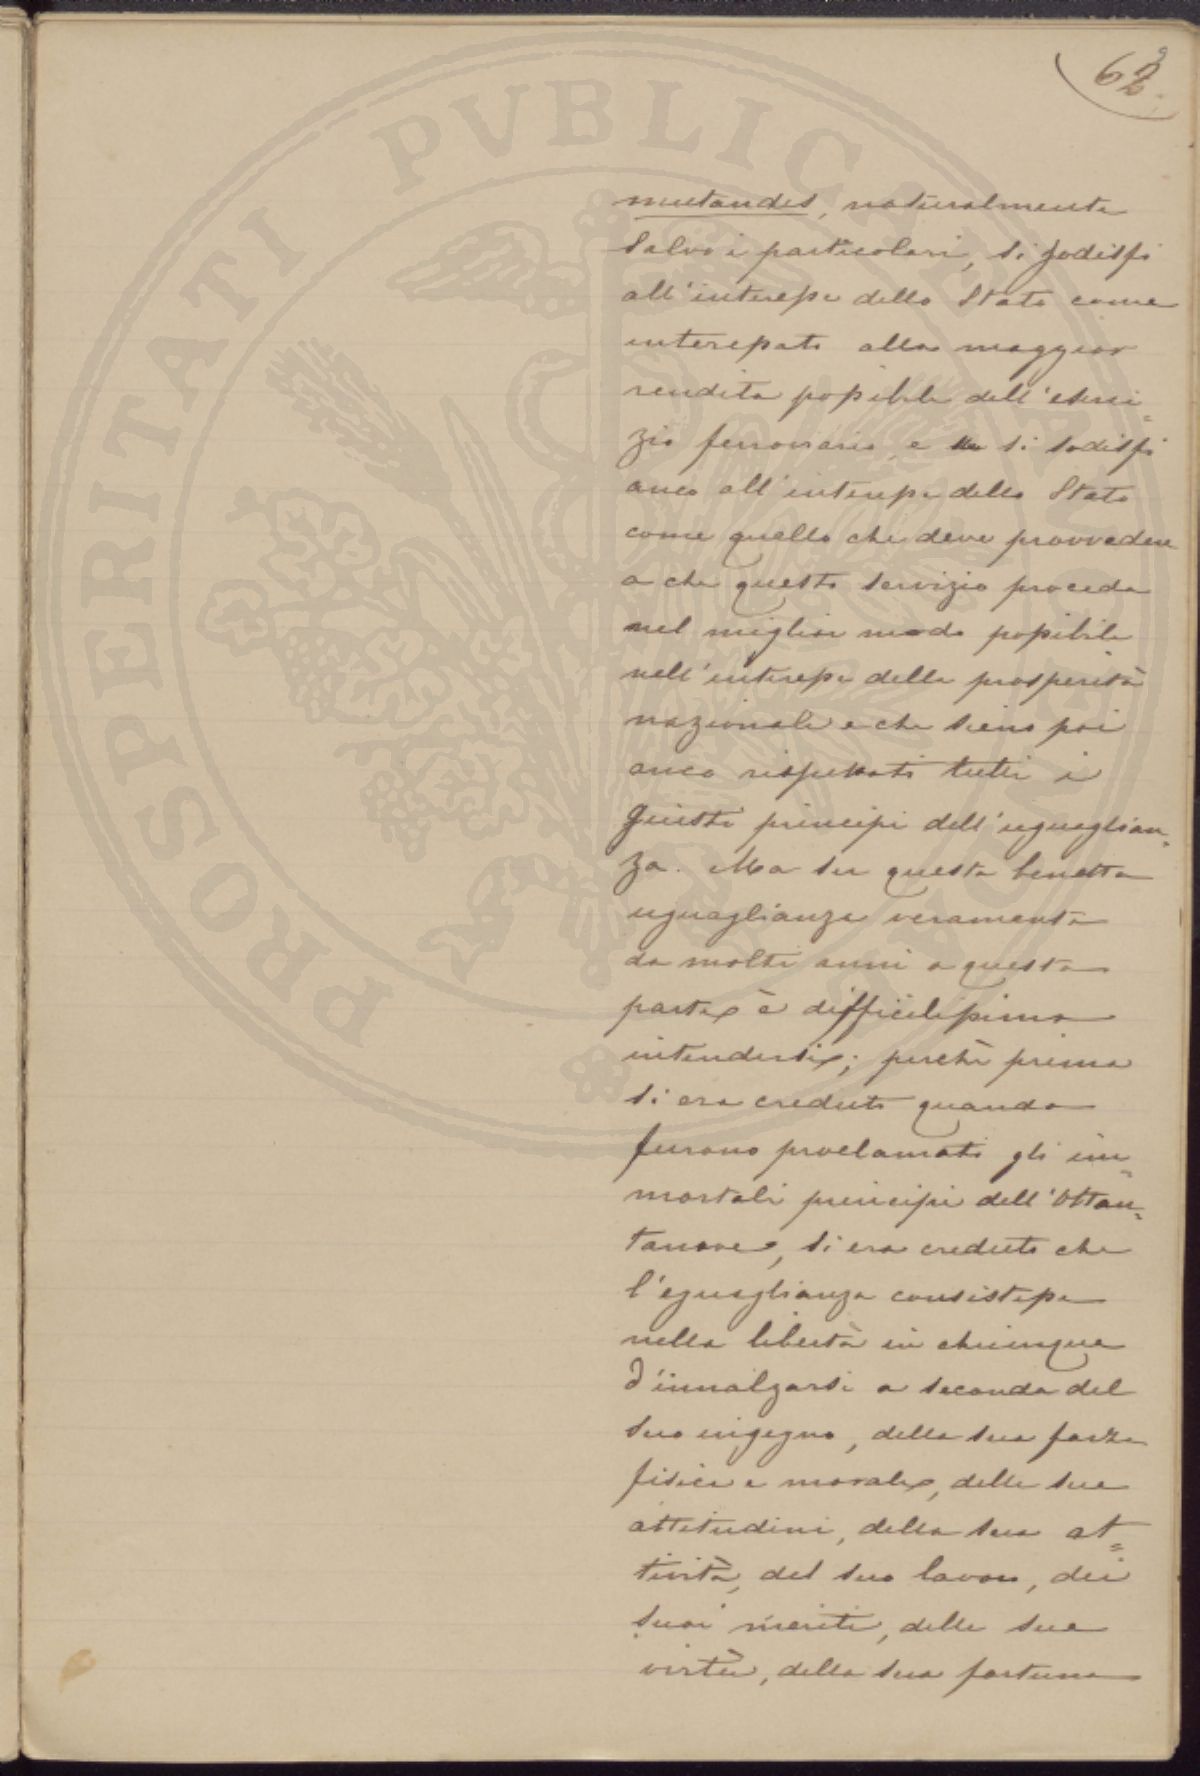 62
mutandis, naturalmente
salvo i particolari, si sodisfi
all'interesse dello Stato come
interessato alla maggior
rendita possibile dell'eserci-
zio ferroviario, e si sodisfi
anco all'interesse dello Stato
come quello che deve provvedere
a che questo servizio proceda
nel miglior modo possibile
nell'interesse della prosperità
nazionale e che sieno poi
anco rispettati tutti i
giusti principi dell'uguaglian-
za. Ma su questa benetta
uguaglianza veramente
da molti anni a questa
parte è difficilissimo
intendersi; perchè prima
si era creduto quando
furono proclamati gli im-
mortali principi dell'Ottan-
tanove, si era creduto che
l'eguaglianza consistesse
nella libertà in chiunque
d'innalzarsi a seconda del
suo ingegno, della sua forza
fisica e morale, delle sue
attitudini, della sua at-
tività, del suo lavoro, dei
suoi meriti, delle sue
virtù, della sua fortuna
PROSPERITATI PVBLICAE